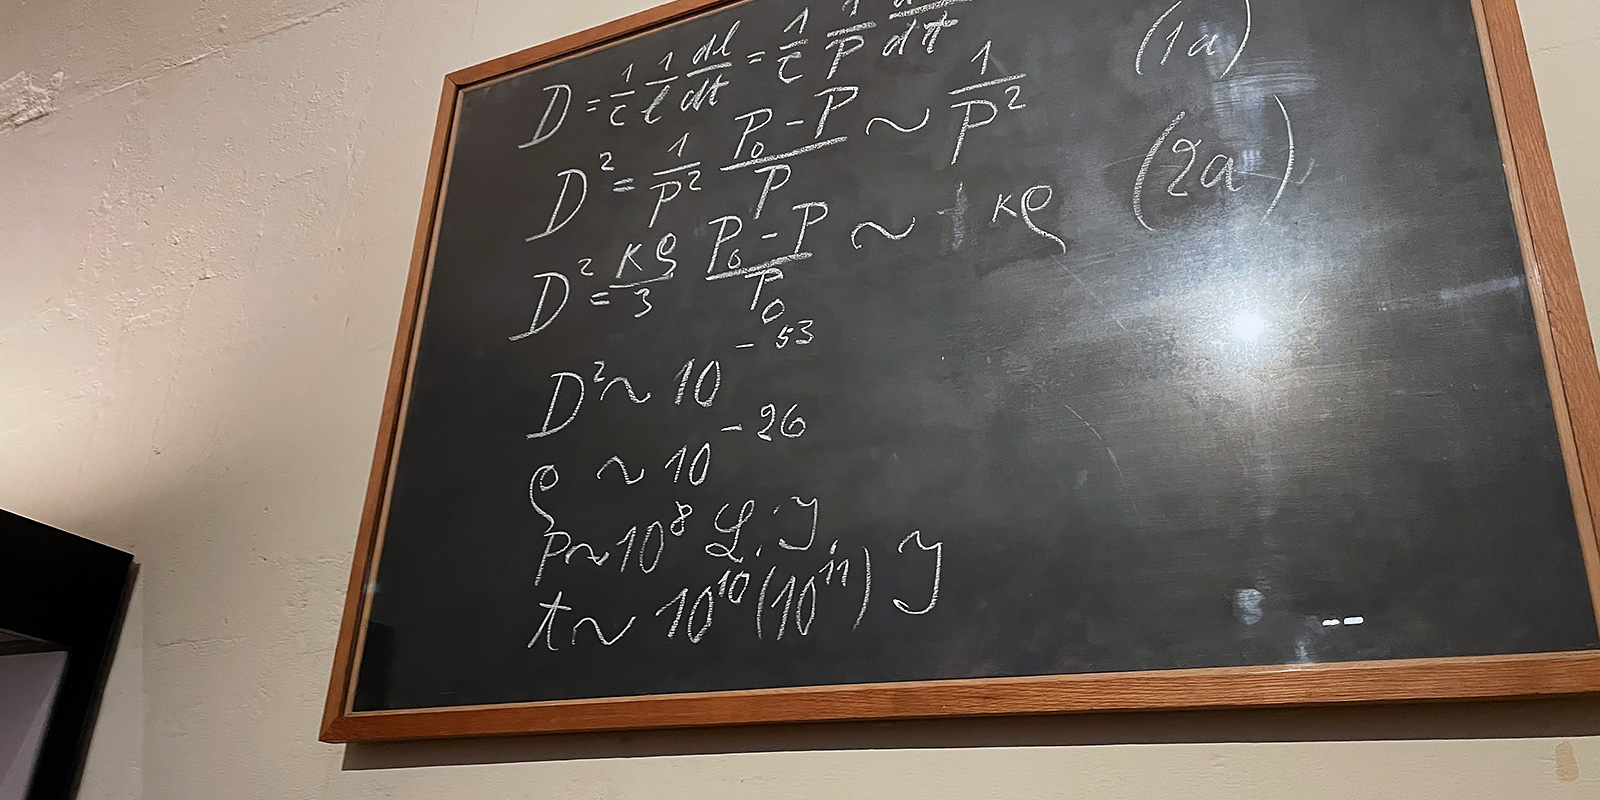 D = 1/c 1/l dl/dt = 1/c 1/P dP/dt (1a)
D² = 1/P² P₀-P/P ~ 1/P² (2a)
D² = κρ/3 P₀-P/P₀ ~ κρ
D² ~ 10⁻⁵³
ρ ~ 10⁻²⁶
P ~ 10⁸ L.y.
t ~ 10¹⁰ (10¹¹) y